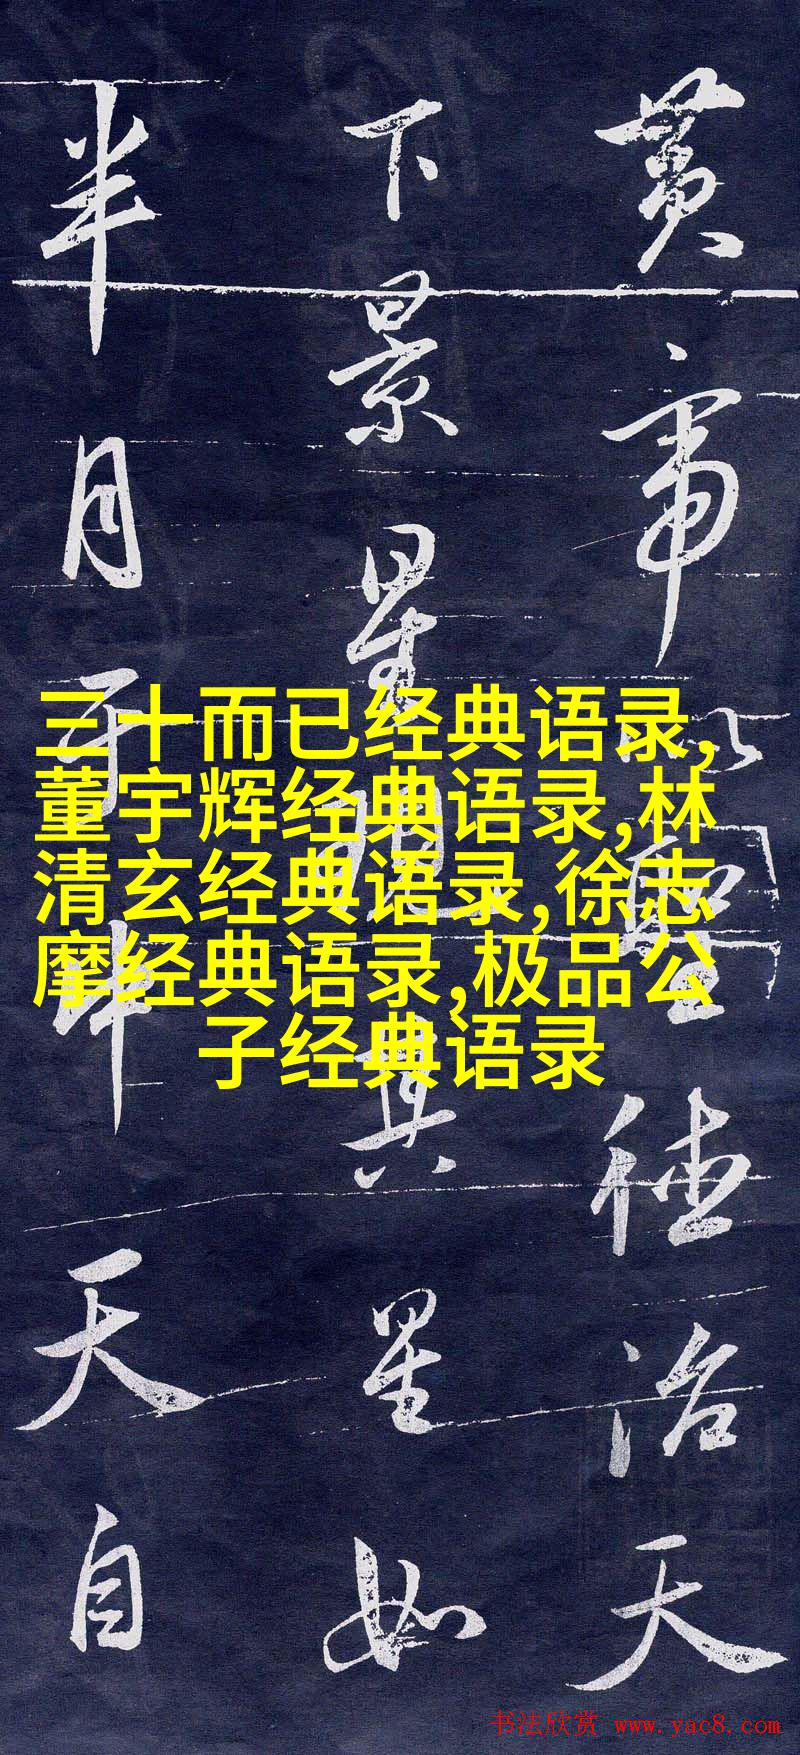 黄帝以聖德治天
下景星明其星如
半月于天自
三十而已经典语录,
董宇辉经典语录,林
清玄经典语录,徐志
摩经典语录,极品公
子经典语录
书法欣赏 www.yac8.com